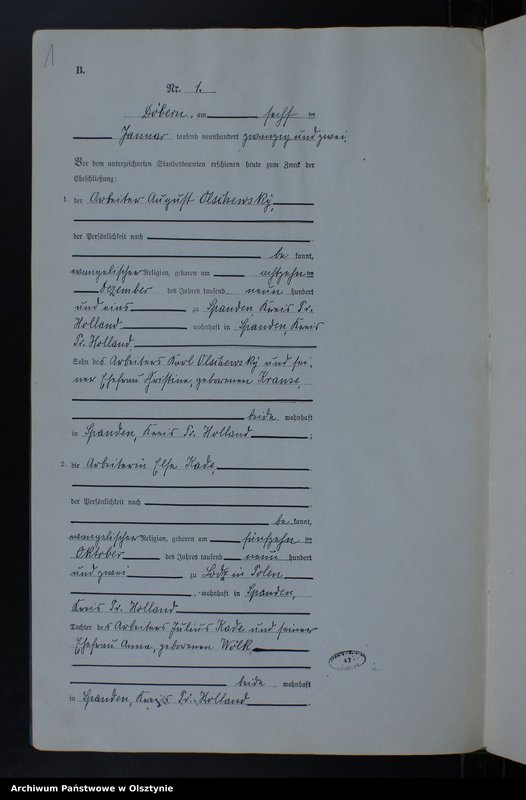 1
B.
Nr. 1.
Döbern, am sechs ten
Januar tausend neunhundert zwanzig und zwei.
Vor dem unterzeichneten Standesbeamten erschienen heute zum Zweck der
Eheschließung:
1. der Arbeiter August Olschewsky,
der Persönlichkeit nach
be kannt,
evangelischer Religion, geboren am achtzehn ten
Dezember des Jahres tausend neun hundert
und eins zu Spanden Kreis Pr.
Holland wohnhaft in Spanden, Kreis
Pr. Holland
Sohn des Arbeiters Karl Olschewsky und sei-
ner Ehefrau Christine, geborenen Krause,
beide wohnhaft
in Spanden, Kreis Pr. Holland ;
2. die Arbeiterin Else Kade,
der Persönlichkeit nach
be kannt,
evangelischer Religion, geboren am fünfzehn ten
Oktober des Jahres tausend neun hundert
und zwei zu Lodz in Polen
, wohnhaft in Spanden,
Kreis Pr. Holland
Tochter des Arbeiters Julius Kade und seiner
Ehefrau Anna, geborenen Wölk,
beide wohnhaft
in Spanden, Kreis Pr. Holland
Archiwum Państwowe w Olsztynie